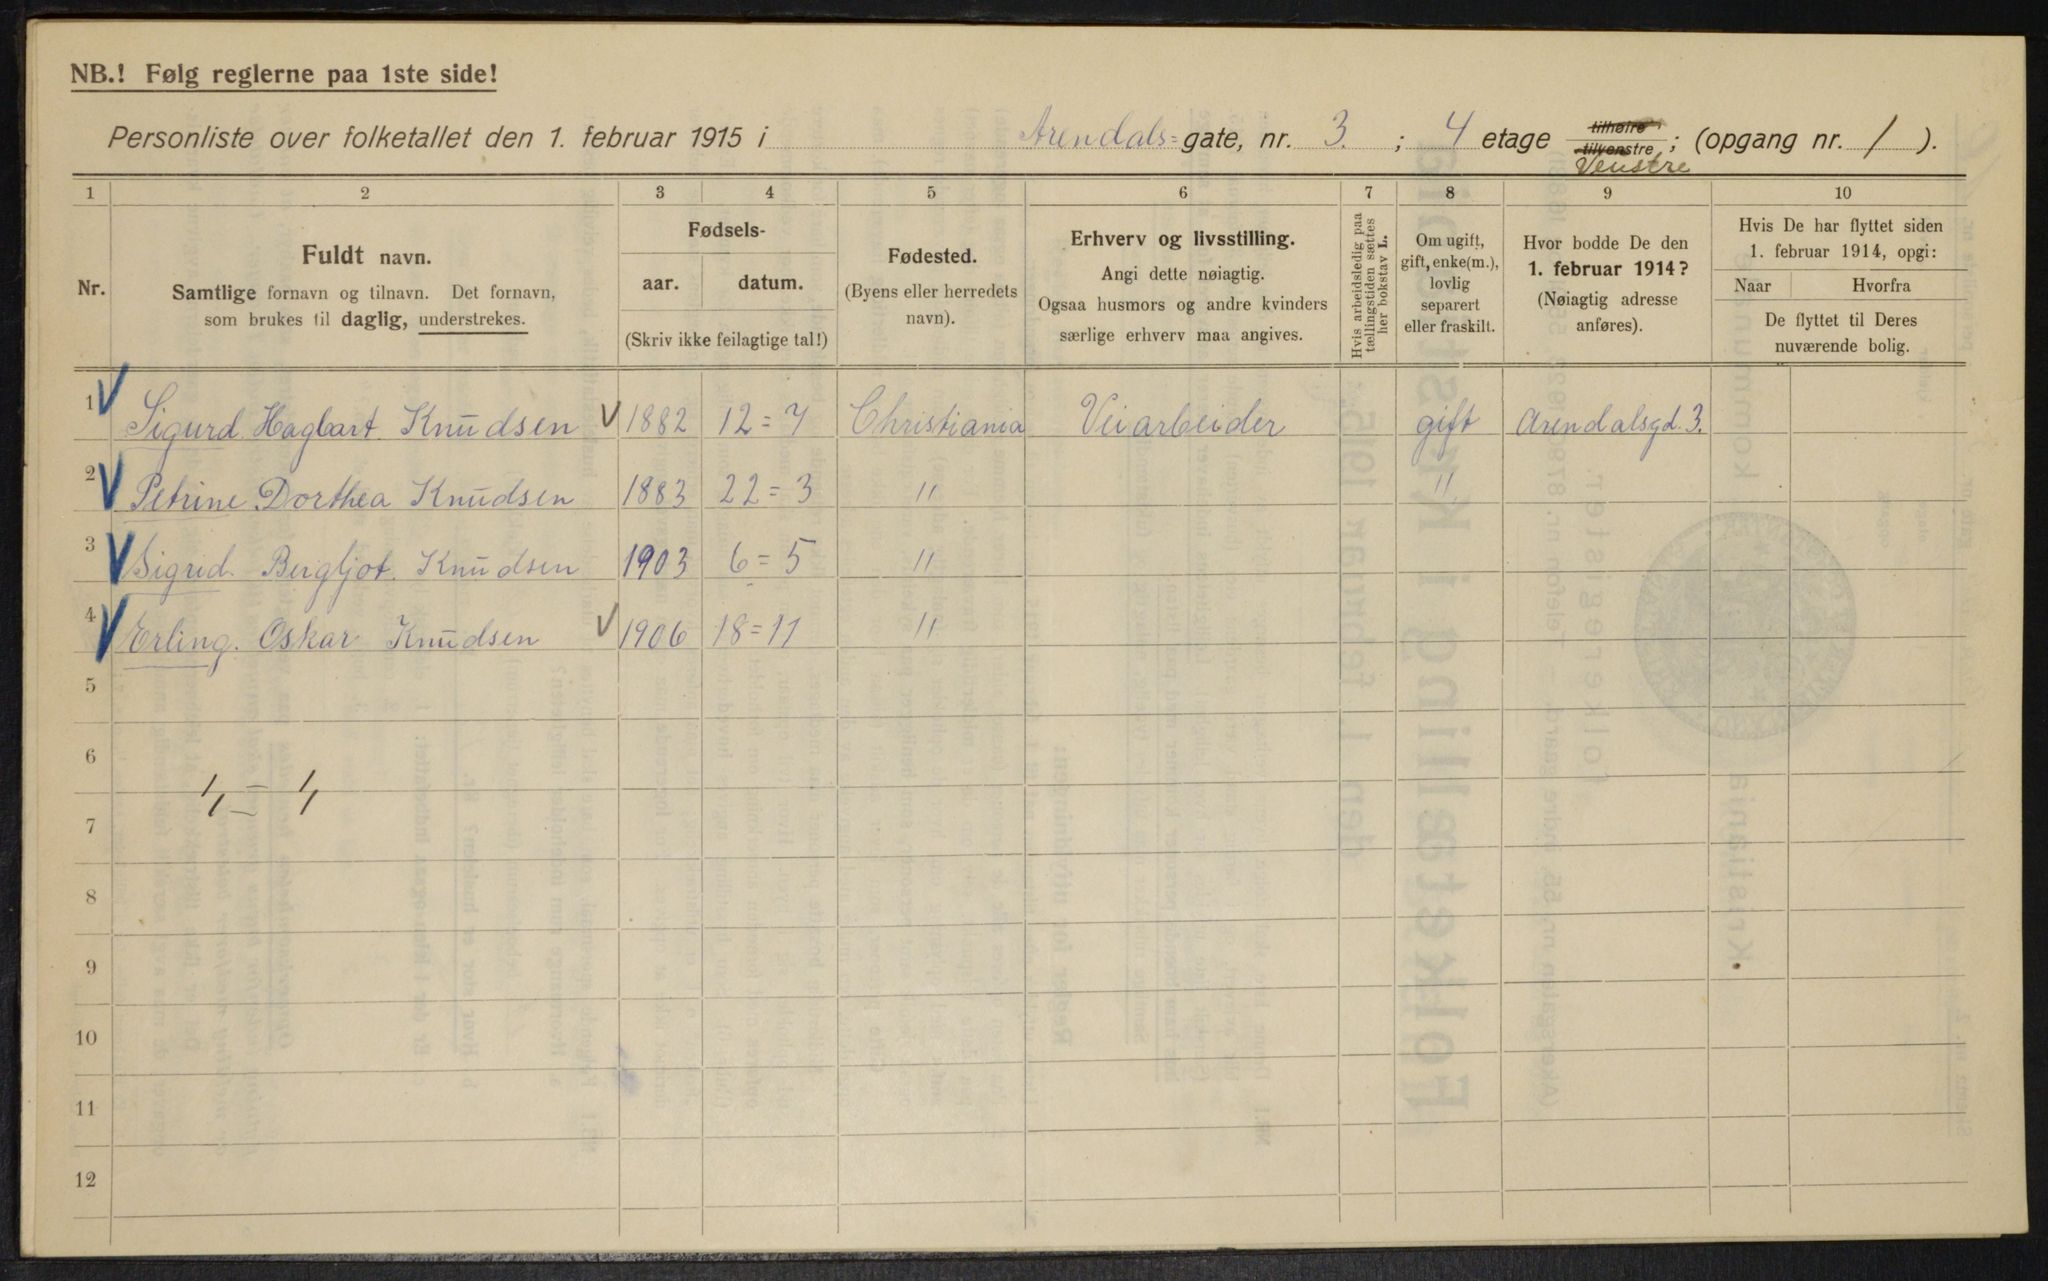 NB.! Følg reglerne paa 1ste side!
Personliste over folketallet den 1. februar 1915 i Arendals=gate, nr. 3. ; 4 etage tilhøire tilvenstre ; (opgang nr. 1 ).
Venstre
1 2 3 4 5 6 7 8 9 10
Nr.
Fuldt navn.
Samtlige fornavn og tilnavn. Det fornavn,
som brukes til daglig, understrekes.
Fødsels-
aar. datum.
(Skriv ikke feilagtige tal!)
Fødested.
(Byens eller herredets
navn).
Erhverv og livsstilling.
Angi dette nøiagtig.
Ogsaa husmors og andre kvinders
særlige erhverv maa angives.
Hvis arbeidsledig paa
tællingstiden sættes
her bokstav L.
Om ugift,
gift, enke(m.),
lovlig
separert
eller fraskilt.
Hvor bodde De den
1. februar 1914?
(Nøiagtig adresse
anføres).
Hvis De har flyttet siden
1. februar 1914, opgi:
Naar Hvorfra
De flyttet til Deres
nuværende bolig.
1 Sigurd. Hagbart. Knudsen 1882 12=7 Christiania Veiarbeider gift Arendalsgd. 3.
2 Petrine. Dorthea Knudsen 1883 22=3 " "
3 Sigrid. Bergljot. Knudsen 1903 6=5 "
4 Erling. Oskar Knudsen 1906 18=11 "
5
6
7
8
9
10
11
12